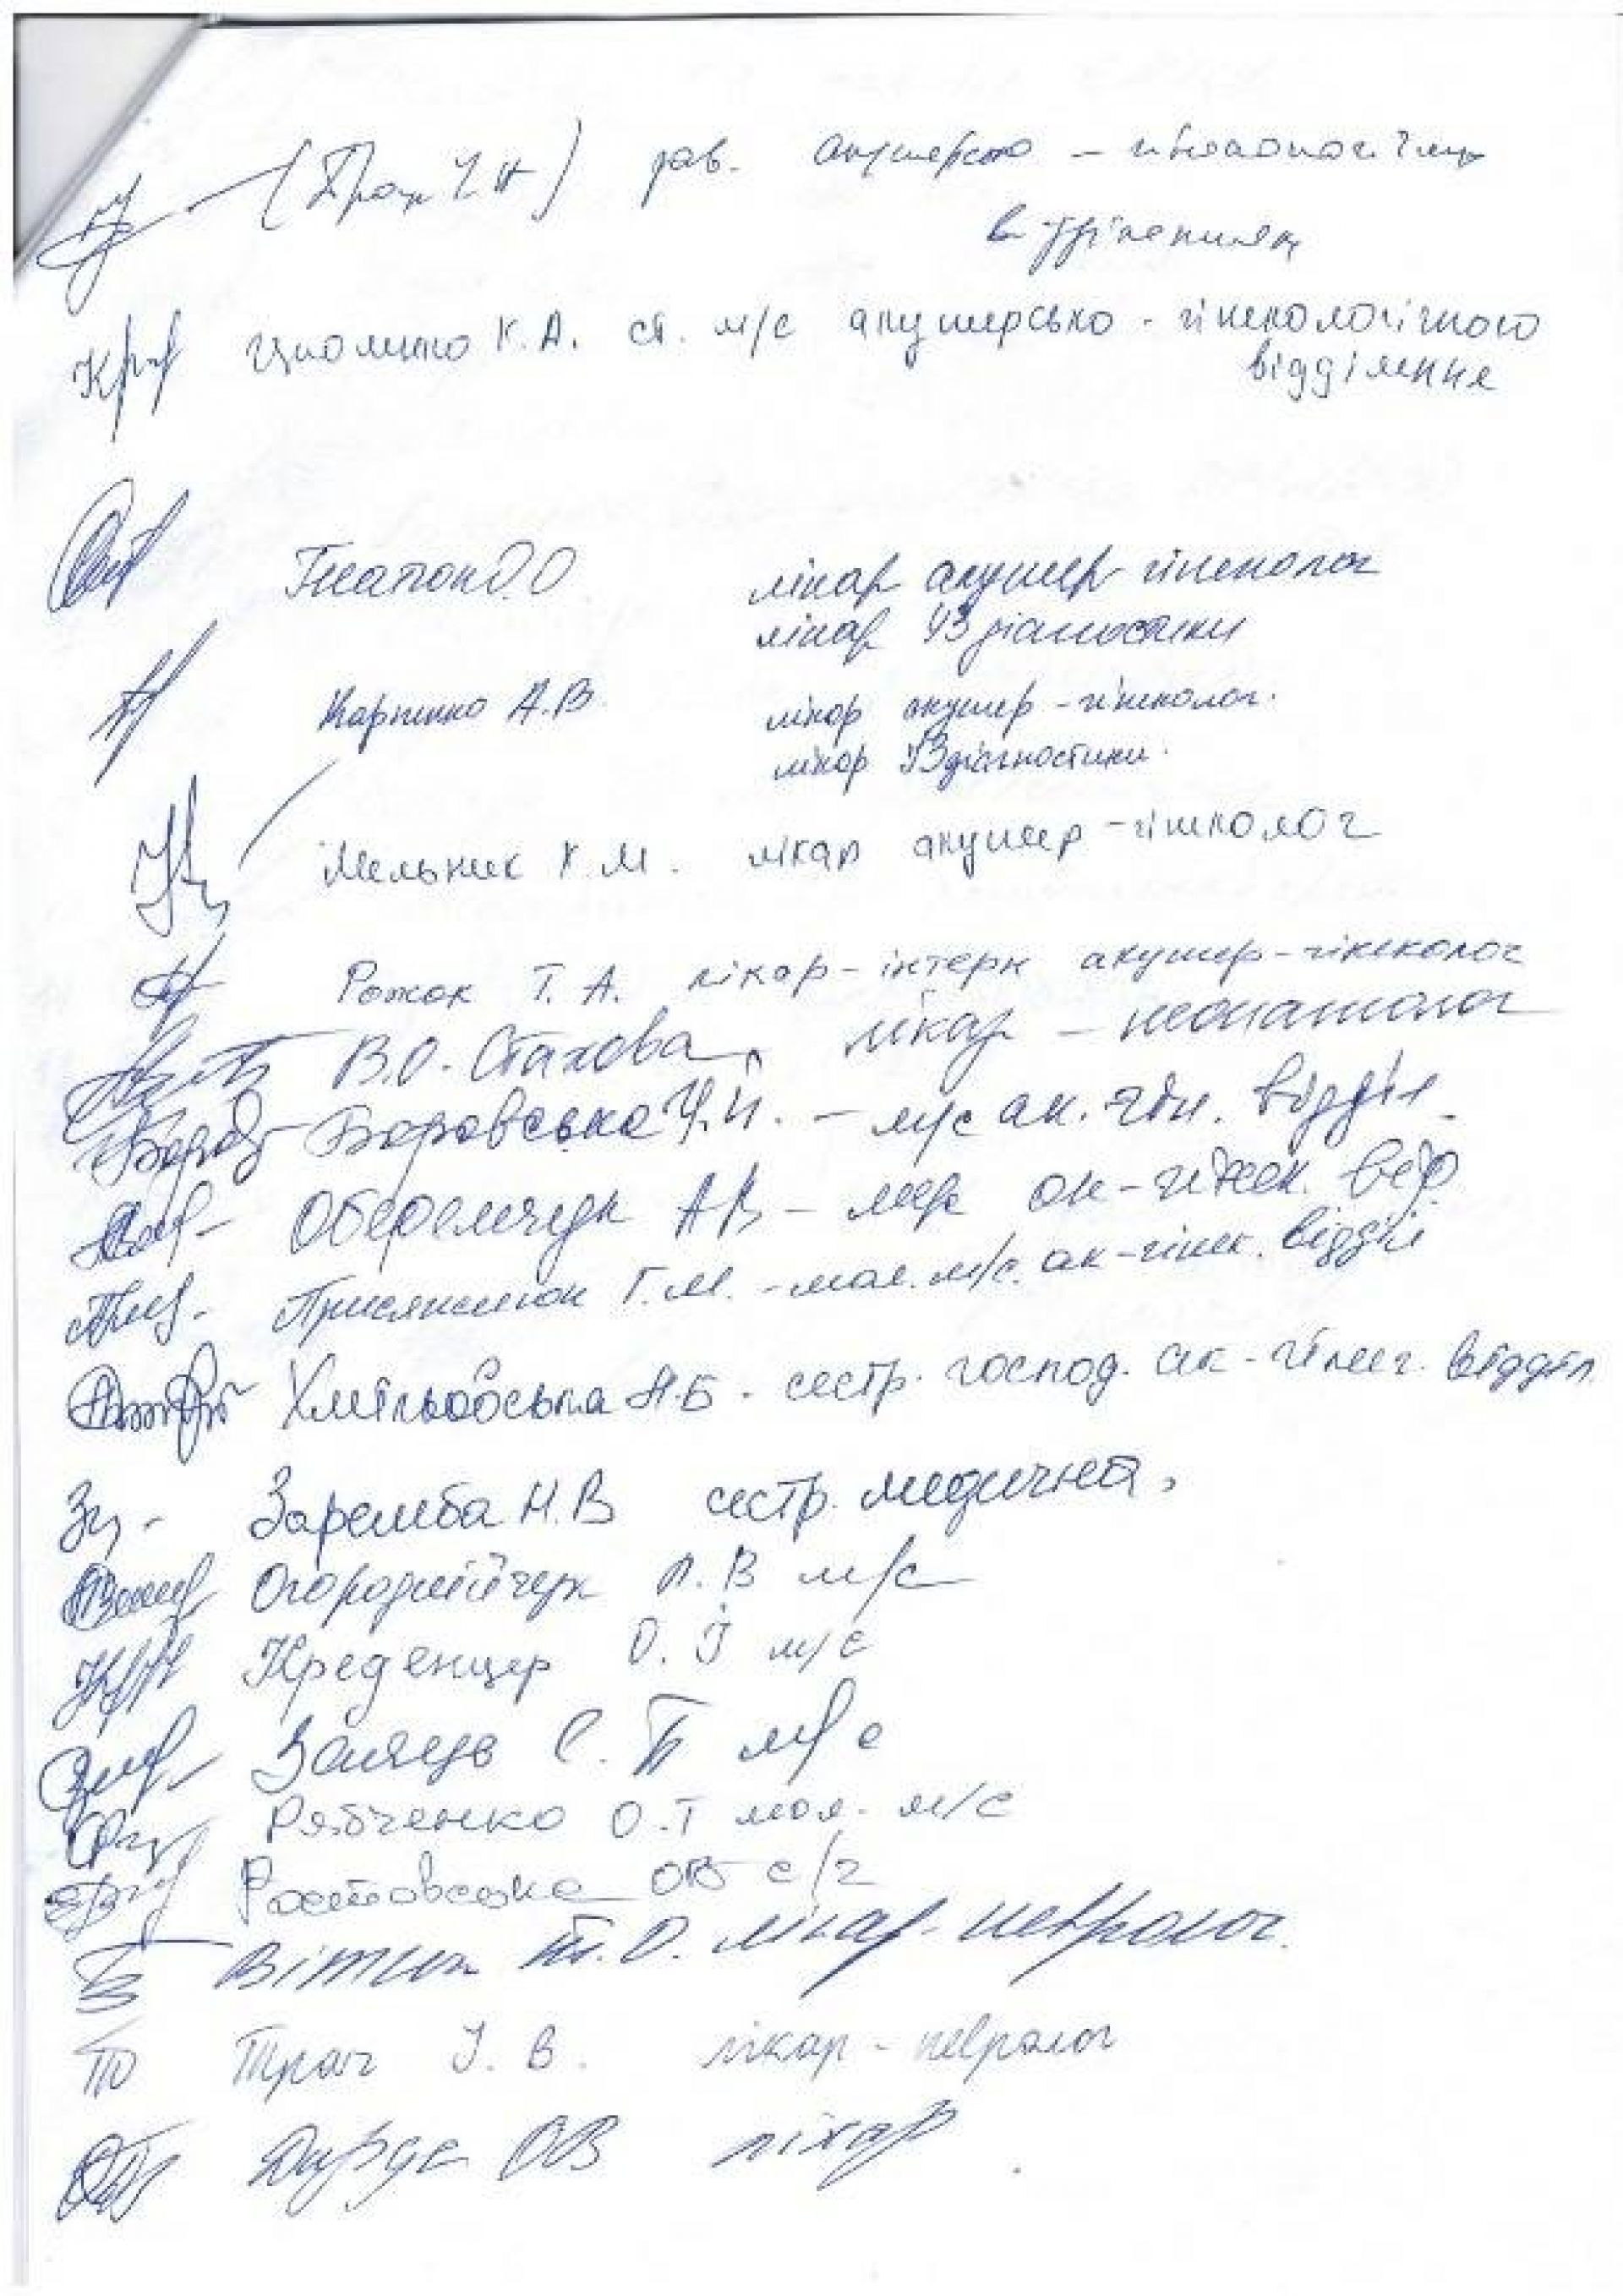 зав. акушерсько - гінекологічним
відділенням
К.А. ст. м/с акушерсько - гінекологічного
відділення
О.О. лікар акушер гінеколог
лікар УЗ діагностики
Карпенко А.В. лікар акушер - гінеколог.
лікар УЗ діагностики.
Мельник К.М. лікар акушер - гінеколог
Рожок Т. А. лікар - інтерн акушер - гінеколог
В.О. Стахова, лікар - неонатолог
Боровська - м/с ак. гін. відділ.
Оберемчук А.В - ак - гінек. від.
Присяжнюк Г.М. - мол. м/с. ак - гінек. відділ
Хмільовська Н.Б. сестр. господ. ак - гінег. відділ.
Заремба Н.В сестр. медична,
Огороднійчук Л.В м/с
Креденцер О. Й м/с
Заяць С. П м/с
Рябченко О.Т мол. м/с
Ростовська ОВ с/г
Вітюк Т.О. лікар - невролог.
Трач І. В. лікар - невролог
ОВ лікар